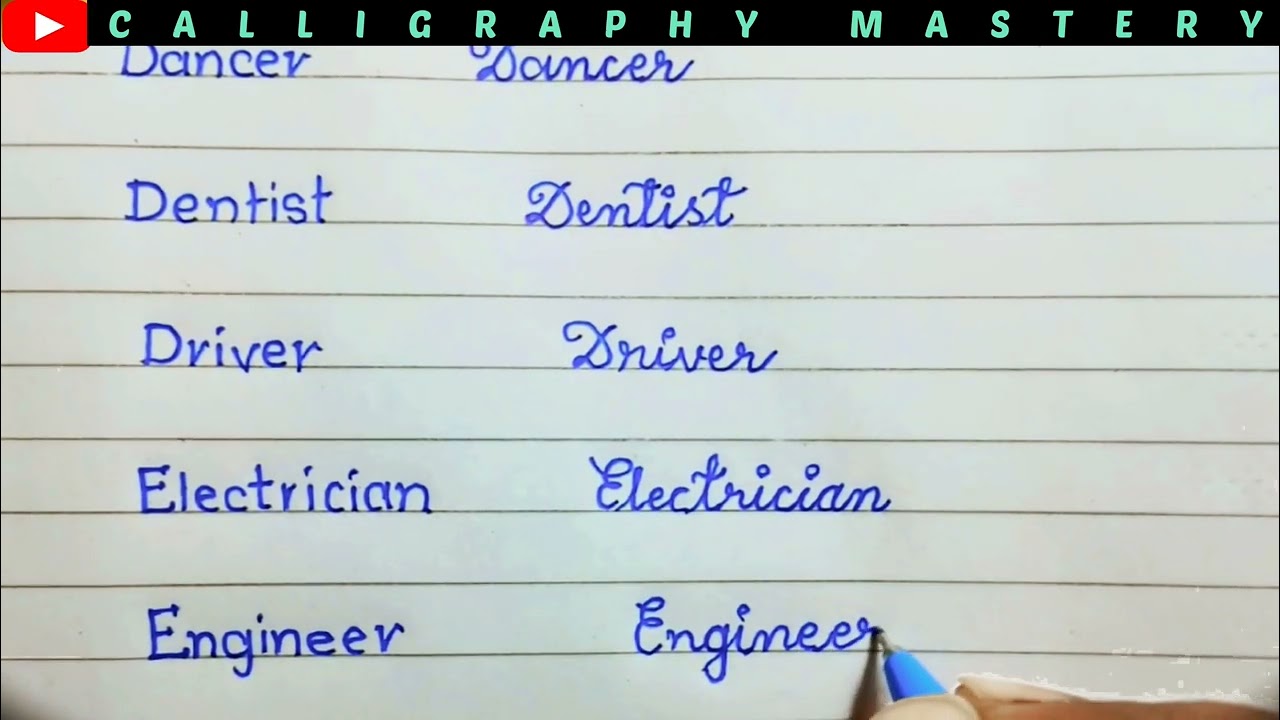 CALLIGRAPHY MASTERY
Dancer Dancer
Dentist Dentist
Driver Driver
Electrician Electrician
Engineer Engineer